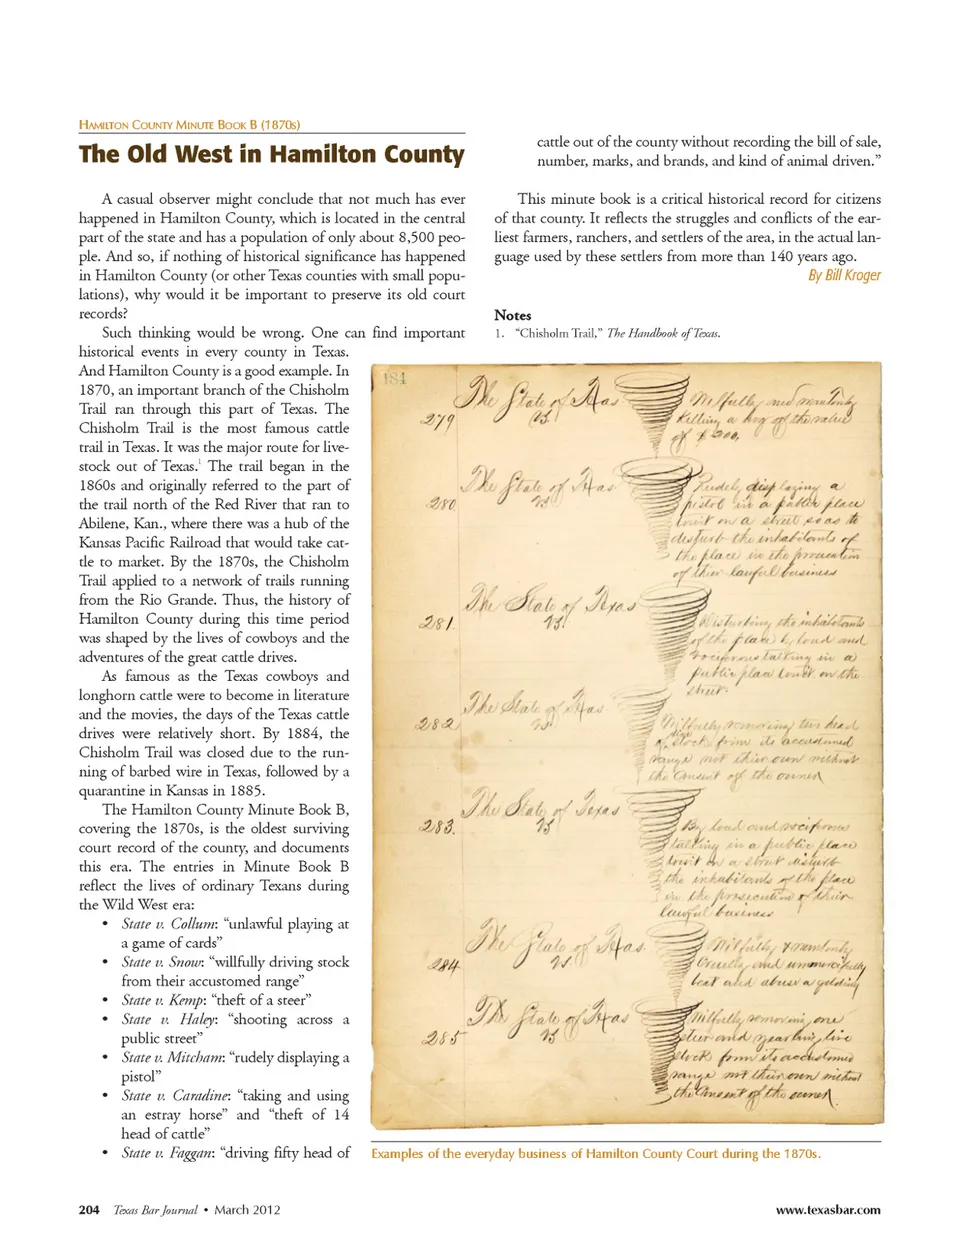 HAMILTON COUNTY MINUTE BOOK B (1870s)
The Old West in Hamilton County
A casual observer might conclude that not much has ever
happened in Hamilton County, which is located in the central
part of the state and has a population of only about 8,500 peo-
ple. And so, if nothing of historical significance has happened
in Hamilton County (or other Texas counties with small popu-
lations), why would it be important to preserve its old court
records?
Such thinking would be wrong. One can find important
historical events in every county in Texas.
And Hamilton County is a good example. In
1870, an important branch of the Chisholm
Trail ran through this part of Texas. The
Chisholm Trail is the most famous cattle
trail in Texas. It was the major route for live-
stock out of Texas.1 The trail began in the
1860s and originally referred to the part of
the trail north of the Red River that ran to
Abilene, Kan., where there was a hub of the
Kansas Pacific Railroad that would take cat-
tle to market. By the 1870s, the Chisholm
Trail applied to a network of trails running
from the Rio Grande. Thus, the history of
Hamilton County during this time period
was shaped by the lives of cowboys and the
adventures of the great cattle drives.
As famous as the Texas cowboys and
longhorn cattle were to become in literature
and the movies, the days of the Texas cattle
drives were relatively short. By 1884, the
Chisholm Trail was closed due to the run-
ning of barbed wire in Texas, followed by a
quarantine in Kansas in 1885.
The Hamilton County Minute Book B,
covering the 1870s, is the oldest surviving
court record of the county, and documents
this era. The entries in Minute Book B
reflect the lives of ordinary Texans during
the Wild West era:
• State v. Collum: “unlawful playing at
a game of cards”
• State v. Snow: “willfully driving stock
from their accustomed range”
• State v. Kemp: “theft of a steer”
• State v. Haley: “shooting across a
public street”
• State v. Mitcham: “rudely displaying a
pistol”
• State v. Caradine: “taking and using
an estray horse” and “theft of 14
head of cattle”
• State v. Faggan: “driving fifty head of
cattle out of the county without recording the bill of sale,
number, marks, and brands, and kind of animal driven.”
This minute book is a critical historical record for citizens
of that county. It reflects the struggles and conflicts of the ear-
liest farmers, ranchers, and settlers of the area, in the actual lan-
guage used by these settlers from more than 140 years ago.
By Bill Kroger
Notes
1. “Chisholm Trail,” The Handbook of Texas.
184
279 The State of Texas
vs.
Wilfully and wantonly
killing a hog of the value
of $
280 The State of Texas
vs
Rudely displaying a
pistol in a public place
towit on a street so as to
disturb the inhabitants of
the place in the prosecution
of their lawful business
281. The State of Texas
vs.
Disturbing the inhabitants
of the place by loud and
vociferous talking in a
public place towit on the
street.
282 The State of Texas
vs
Wilfully removing
stock from its accustomed
range not their own without
the consent of the owner
283. The State of Texas
vs
By loud and vociferous
talking in a public place
towit on a street disturb
the inhabitants of the place
in the prosecution of their
lawful business
284 The State of Texas
vs
Wilfully & wantonly
cruelly and unmercifully
beat and abuse a gelding
285 The State of Texas
vs
Wilfully removing one
steer and yearling live
stock from its accustomed
range not their own without
the consent of the owner.
Examples of the everyday business of Hamilton County Court during the 1870s.
204 Texas Bar Journal • March 2012
www.texasbar.com